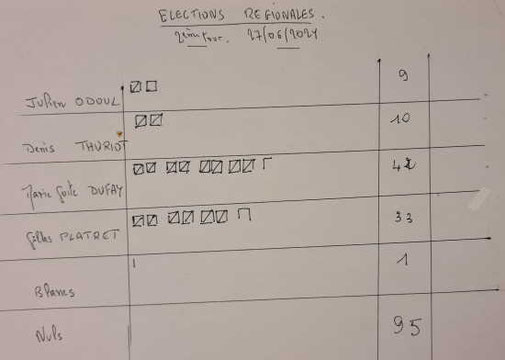 ELECTIONS REGIONALES.
2ème tour. 27/06/2021
Julien ODOUL 9
Denis THURIOT 10
Marie Guite DUFAY 42
Gilles PLATRET 33
Blancs 1
Nuls 95